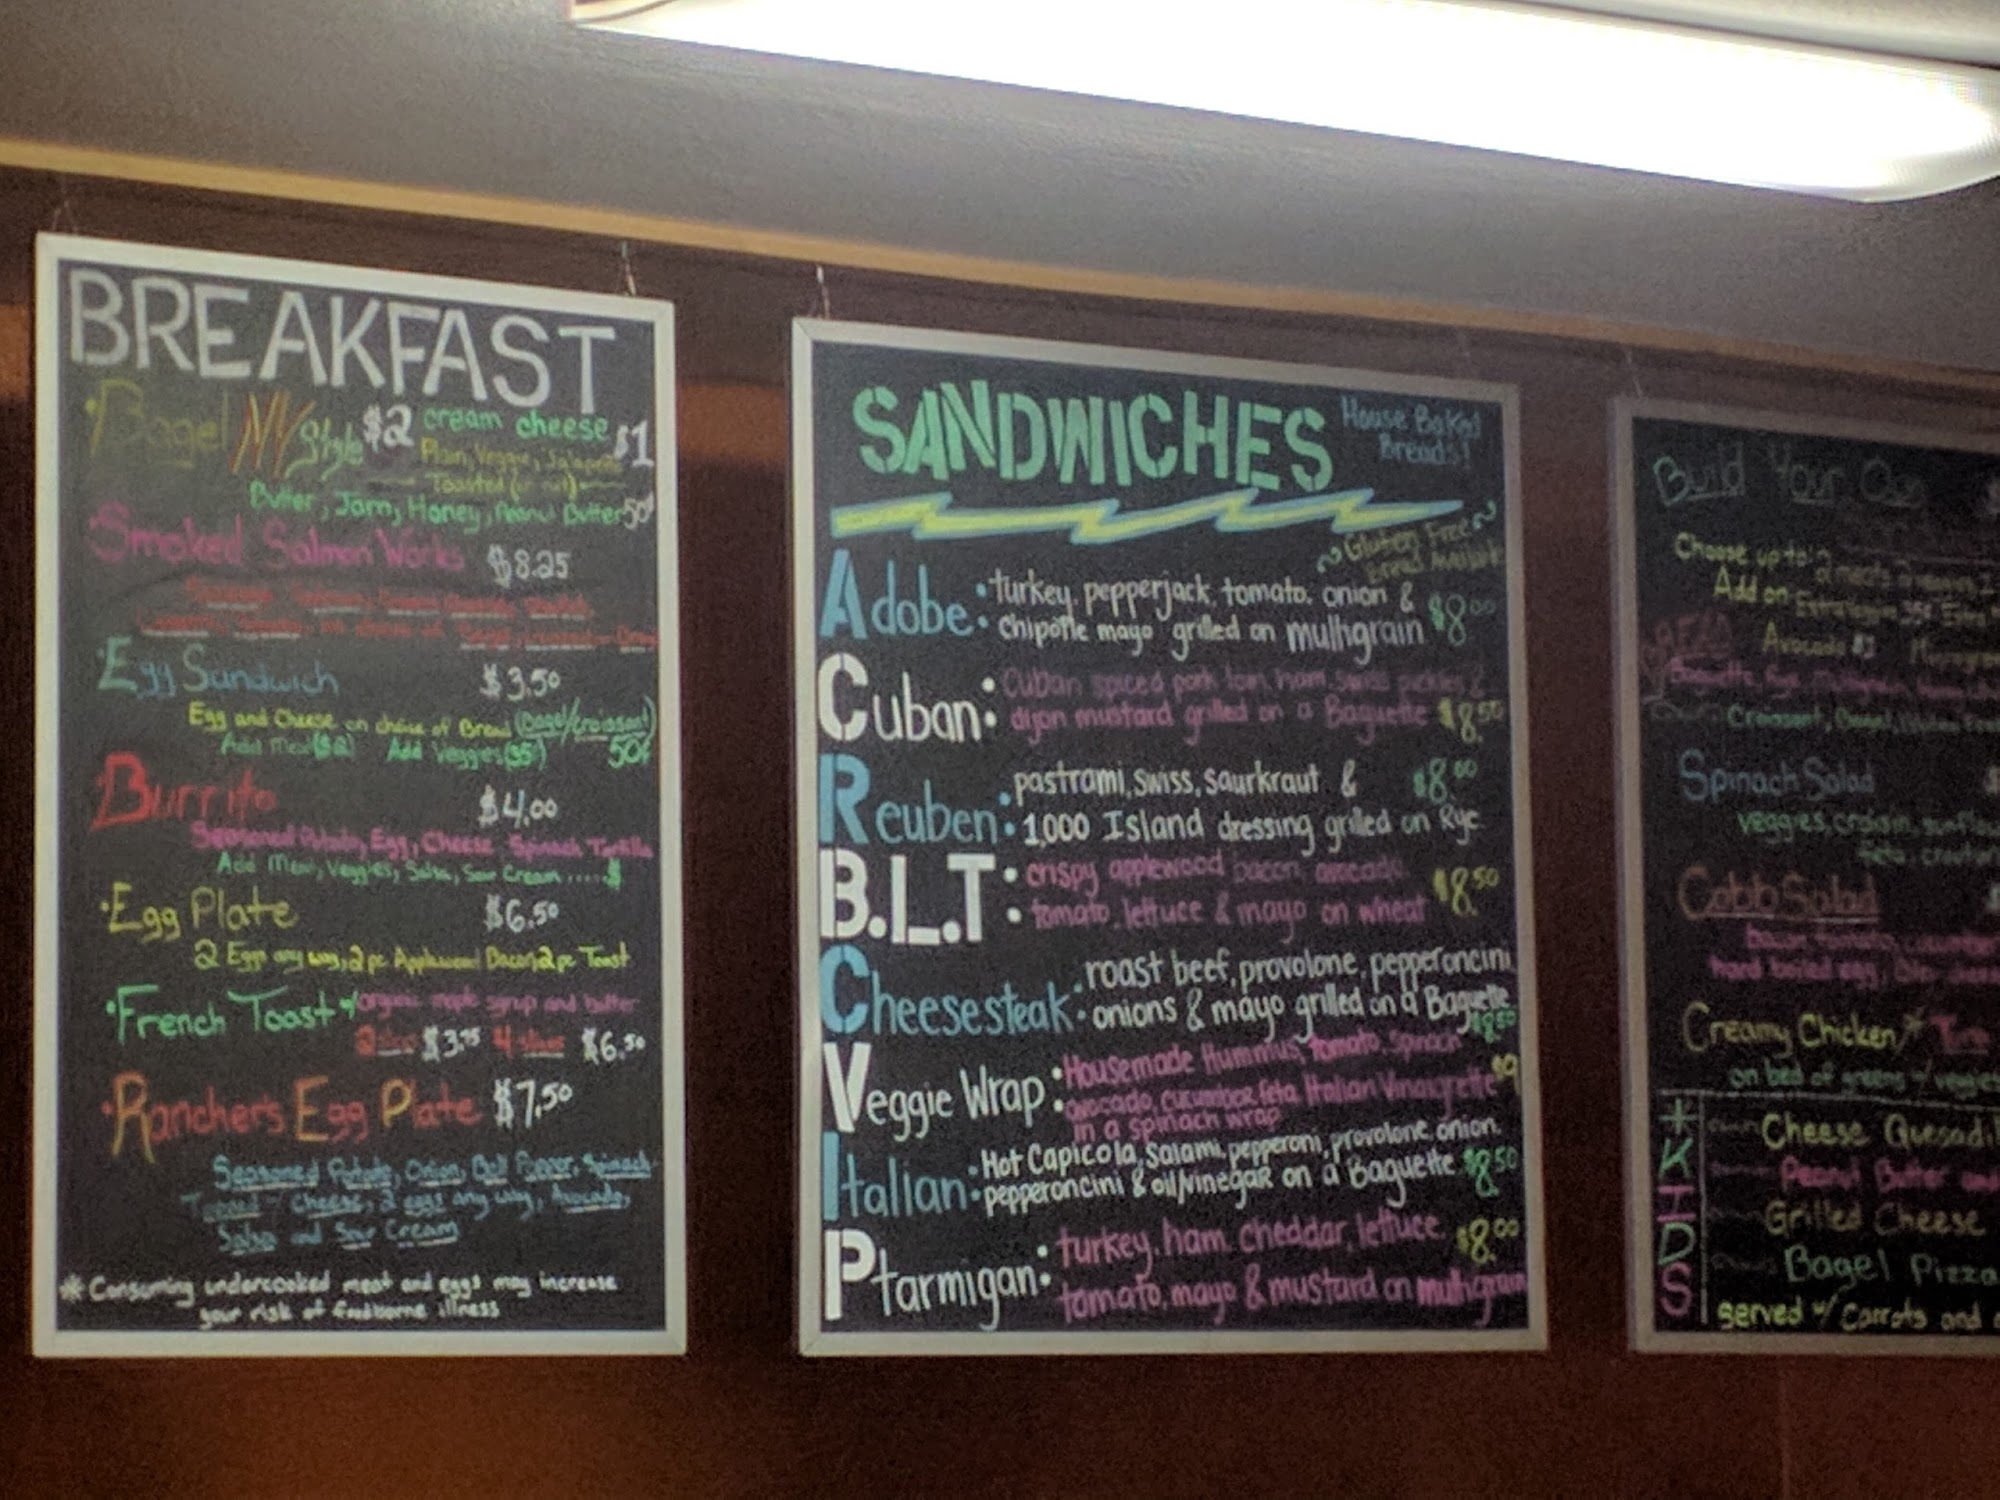 BREAKFAST
Bagel NY Style $2 cream cheese $1
Plain, Veggie, Jalapeño
Toasted (or not)
Butter, Jam, Honey, Peanut Butter 50¢
Smoked Salmon Works $8.25
Egg Sandwich $3.50
Egg and Cheese on choice of Bread (Bagel/Croissant)
Add Meat ($2) Add Veggies (35¢) 50¢
Burrito $4.00
Seasoned Potato, Egg, Cheese Spinach Tortilla
Add Meat, Veggies, Salsa, Sour Cream ..... $
Egg Plate $6.50
2 Eggs any way, 2 pc Applewood Bacon, 2 pc Toast
French Toast w/ organic maple syrup and butter
2 slices $3.75 4 slices $6.50
Rancher's Egg Plate $7.50
Seasoned Potato, Onion, Bell Pepper, Spinach
Topped w/ Cheese, 2 eggs any way, Avocado,
Salsa and Sour Cream
* Consuming undercooked meat and eggs may increase
your risk of foodborne illness
SANDWICHES
House Baked
Breads!
~ Gluten Free ~
Bread Available
Adobe: turkey, pepperjack, tomato, onion &
chipotle mayo grilled on multigrain $8.00
Cuban: Cuban spiced pork loin, ham, swiss pickles &
dijon mustard grilled on a Baguette $8.50
Reuben: pastrami, swiss, saurkraut & $8.00
1,000 Island dressing grilled on Rye
B.L.T: crispy applewood bacon, avocado,
tomato, lettuce & mayo on wheat $8.50
Cheesesteak: roast beef, provolone, pepperoncini
onions & mayo grilled on a Baguette $8.50
Veggie Wrap: Housemade Hummus, tomato, spinach
avocado, cucumber, feta, Italian Vinaigrette $9
in a spinach wrap
Italian: Hot Capicola, Salami, pepperoni, provolone, onion,
pepperoncini & oil/vinegar on a Baguette $8.50
Ptarmigan: turkey, ham, cheddar, lettuce $8.00
tomato, mayo & mustard on multigrain
Build Your Own
Choose up to 2 meats
Add on Extra Veggies 35¢ Extra
Avocado $1
Croissant, Bagel,
Spinach Salad
veggies,
feta,
Cobb Salad
bacon, tomato, cucumber
hard boiled egg,
Creamy Chicken
on bed of greens w/ veggies
* KIDS
Cheese
Peanut Butter and
Grilled Cheese
Bagel Pizza
served w/ Carrots and